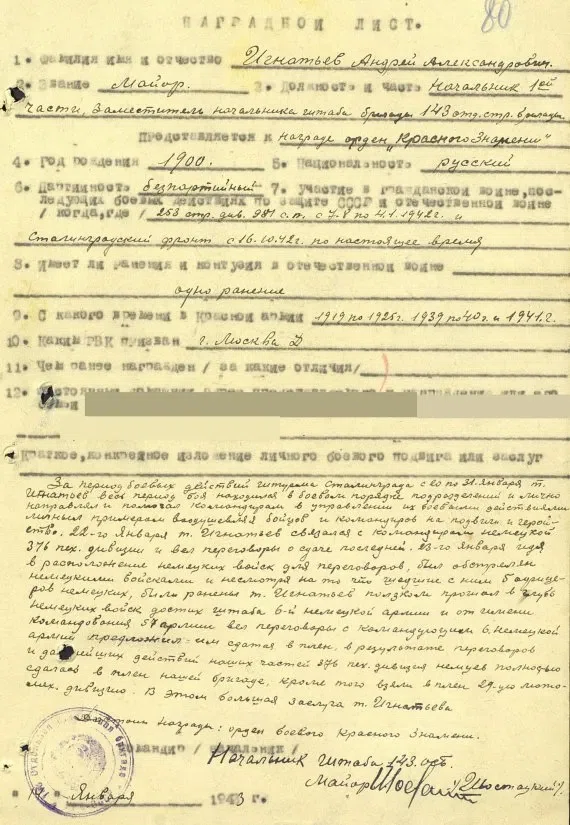 80
НАГРАДНОЙ ЛИСТ.
1. Фамилия имя и отчество Игнатьев Андрей Александрович.
2. Звание Майор. 3. Должность и часть Начальник 1ой
части, заместитель начальника штаба бригады 143 отд. стр. бригады
Представляется к награде орден "Красного Знамени"
4. Год рождения 1900. 5. Национальность русский
6. Партийность безпартийный 7. участие в гражданской войне, пос-
ледующих боевых действиях по защите СССР и отечественной войне
/ когда, где / 258 стр. див. 991 с.п. с 7.8 по 4.1.1942г. и
Сталинградский фронт с 16.10.42г. по настоящее время
8. Имеет ли ранения и контузии в отечественной войне
одно ранение
9. С какого времени в Красной армии 1919 по 1925г. 1939 по 40г. и 1941.г.
10. Каким РВК призван г. Москва
11. Чем ранее награжден / за какие отличия/
12.
семьи
Краткое, конкретное изложение личного боевого подвига или заслуг
За период боевых действий штурма Сталинграда с 20 по 31 января т.
Игнатьев весь период боя находился в боевом порядке подразделений и лично
направлял и помогал командирам в управлении их боевыми действиями
личным примером воодушевляя бойцов и командиров на подвиги и герой-
ство. 22-го января т. Игнатьев связался с командиром немецкой
376 пех. дивизии и вел переговоры о сдаче последней. 23-го января идя
в расположение немецких войск для переговоров, был обстрелен
немецкими войсками и несмотря на то что шедшие с ним 5 офице-
ров немецких, были ранены т. Игнатьев ползком проник в глубь
немецких войск достиг штаба 6-й немецкой армии и от имени
командования 57 армии вел переговоры с командующим 6 немецкой
армии предложил им сдатся в плен, в результате переговоров
и дальнейших действий наших частей 376 пех. дивизия немцев полностью
сдалась в плен нашей бригаде, кроме того взяли в плен 29-ую мото-
мех. дивизию. В этом большая заслуга т. Игнатьева
награды: орден боевого Красного Знамени.
Командир / начальник /
Начальник штаба 143 осб.
Майор /Шостацкий/.
" " Января 1943 г.